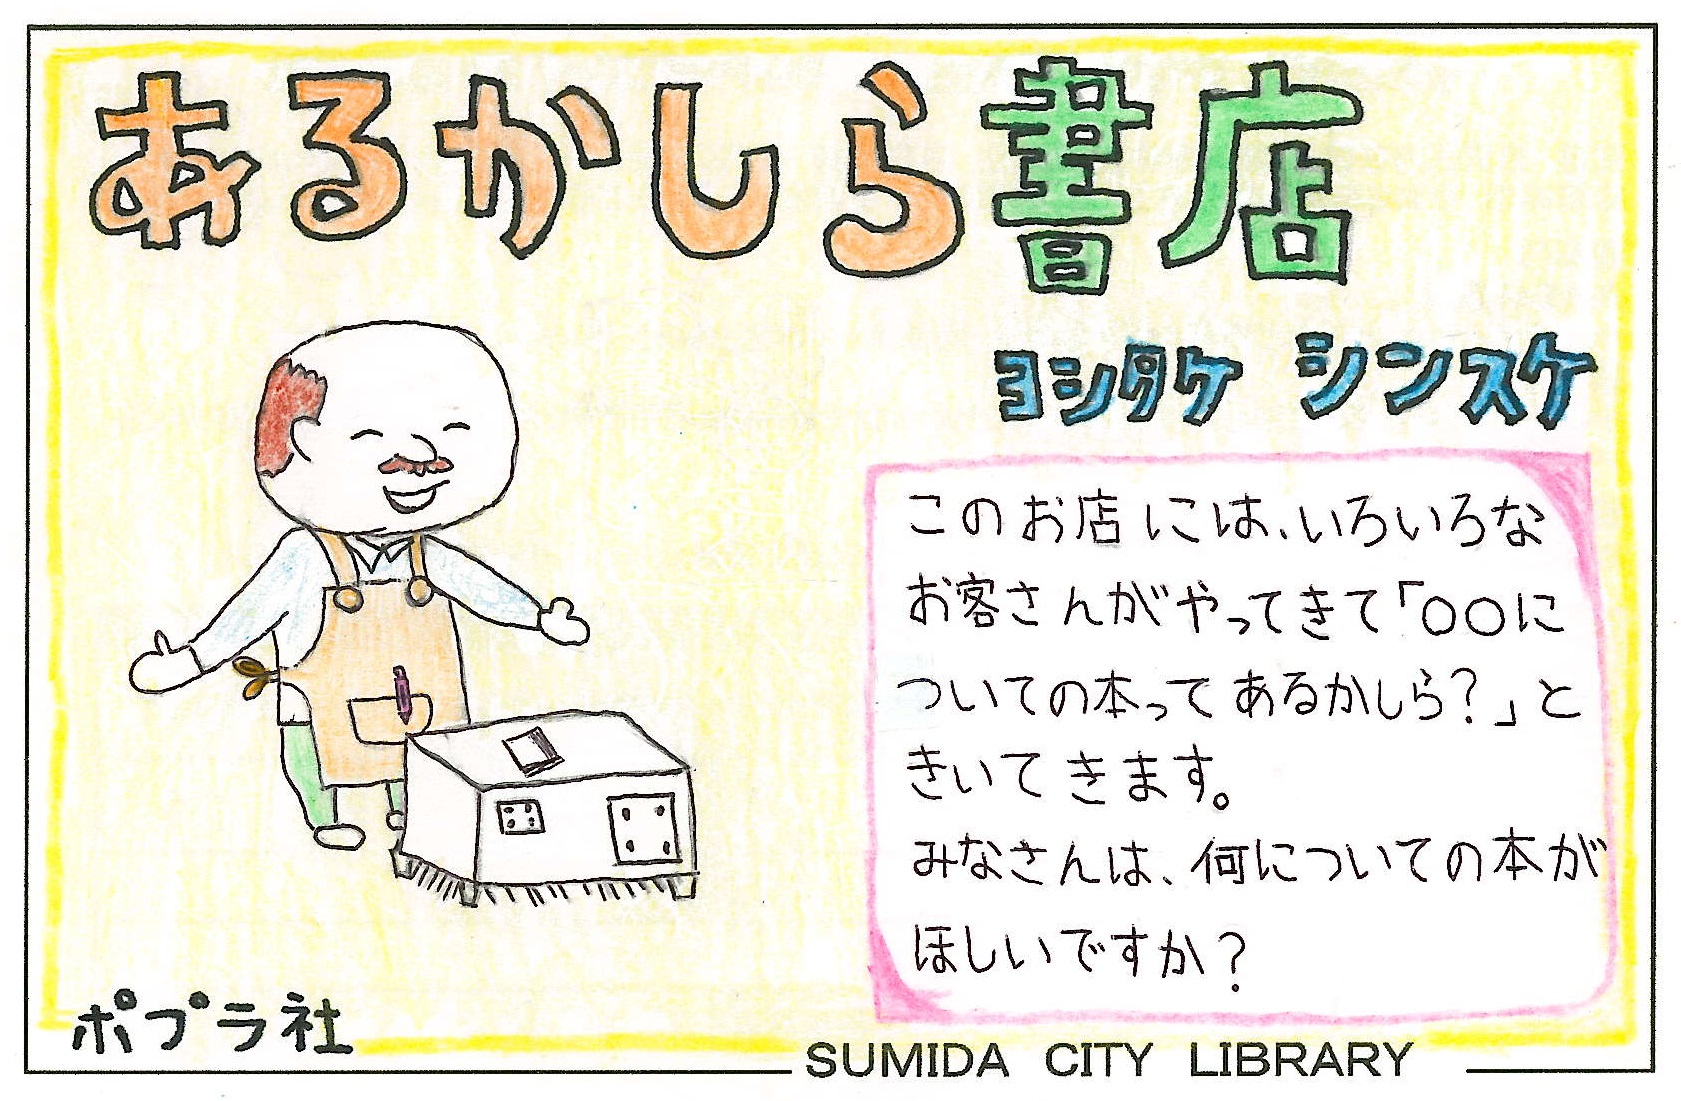 あるかしら書店
ヨシタケ シンスケ
このお店には、いろいろな
お客さんがやってきて「〇〇に
ついての本ってあるかしら？」と
きいてきます。
みなさんは、何についての本が
ほしいですか？
ポプラ社
SUMIDA CITY LIBRARY